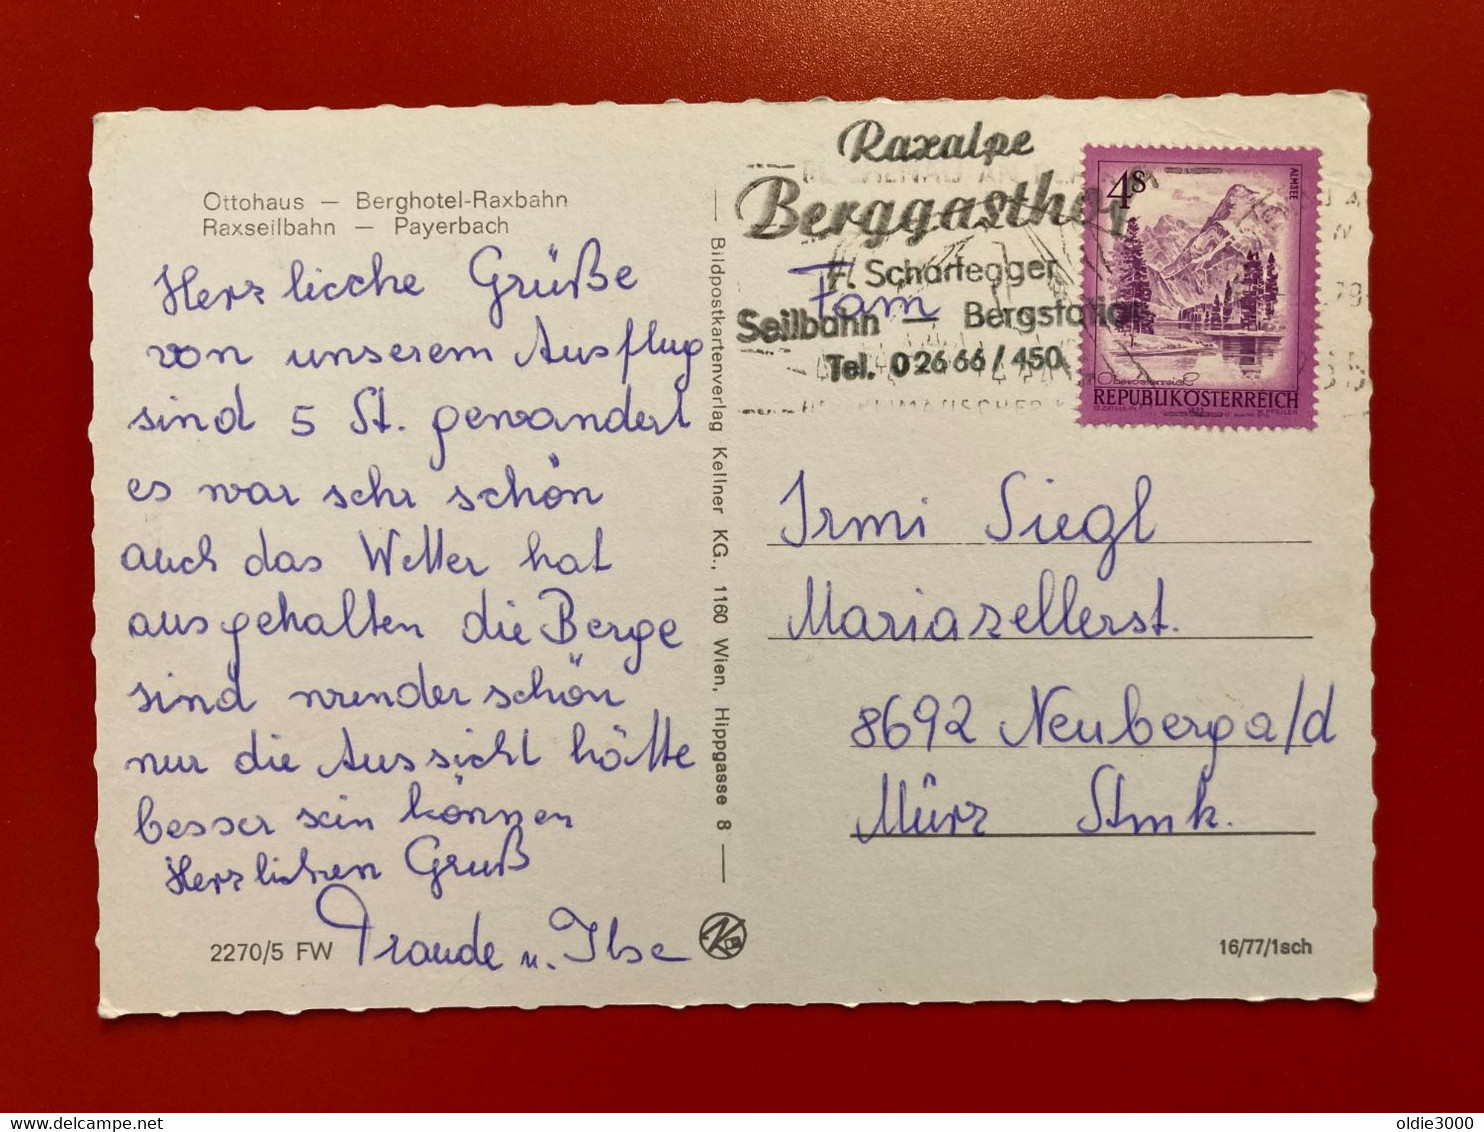 Ottohaus — Berghotel-Raxbahn
Raxseilbahn — Payerbach
Herzlicche Grüße
von unserem Ausflug
sind 5 St. gewandert
es war sehr schön
auch das Wetter hat
ausgehalten die Berge
sind wunder schön
nur die Aussicht hätte
besser sein können
Herzlichen Gruß
Traude u. Ilse
2270/5 FW
— Bildpostkartenverlag Kellner KG., 1160 Wien, Hippgasse 8 —
Raxalpe
Berggasthof
F. Scharfegger
Seilbahn — Bergstation
Tel. 02666/450
4 S
ALMSEE
Oberösterreich
REPUBLIK ÖSTERREICH
Fam
Irmi Siegl
Mariazellerst.
8692 Neuberg a/d
Mürz Stmk.
16/77/1sch
oldie3000